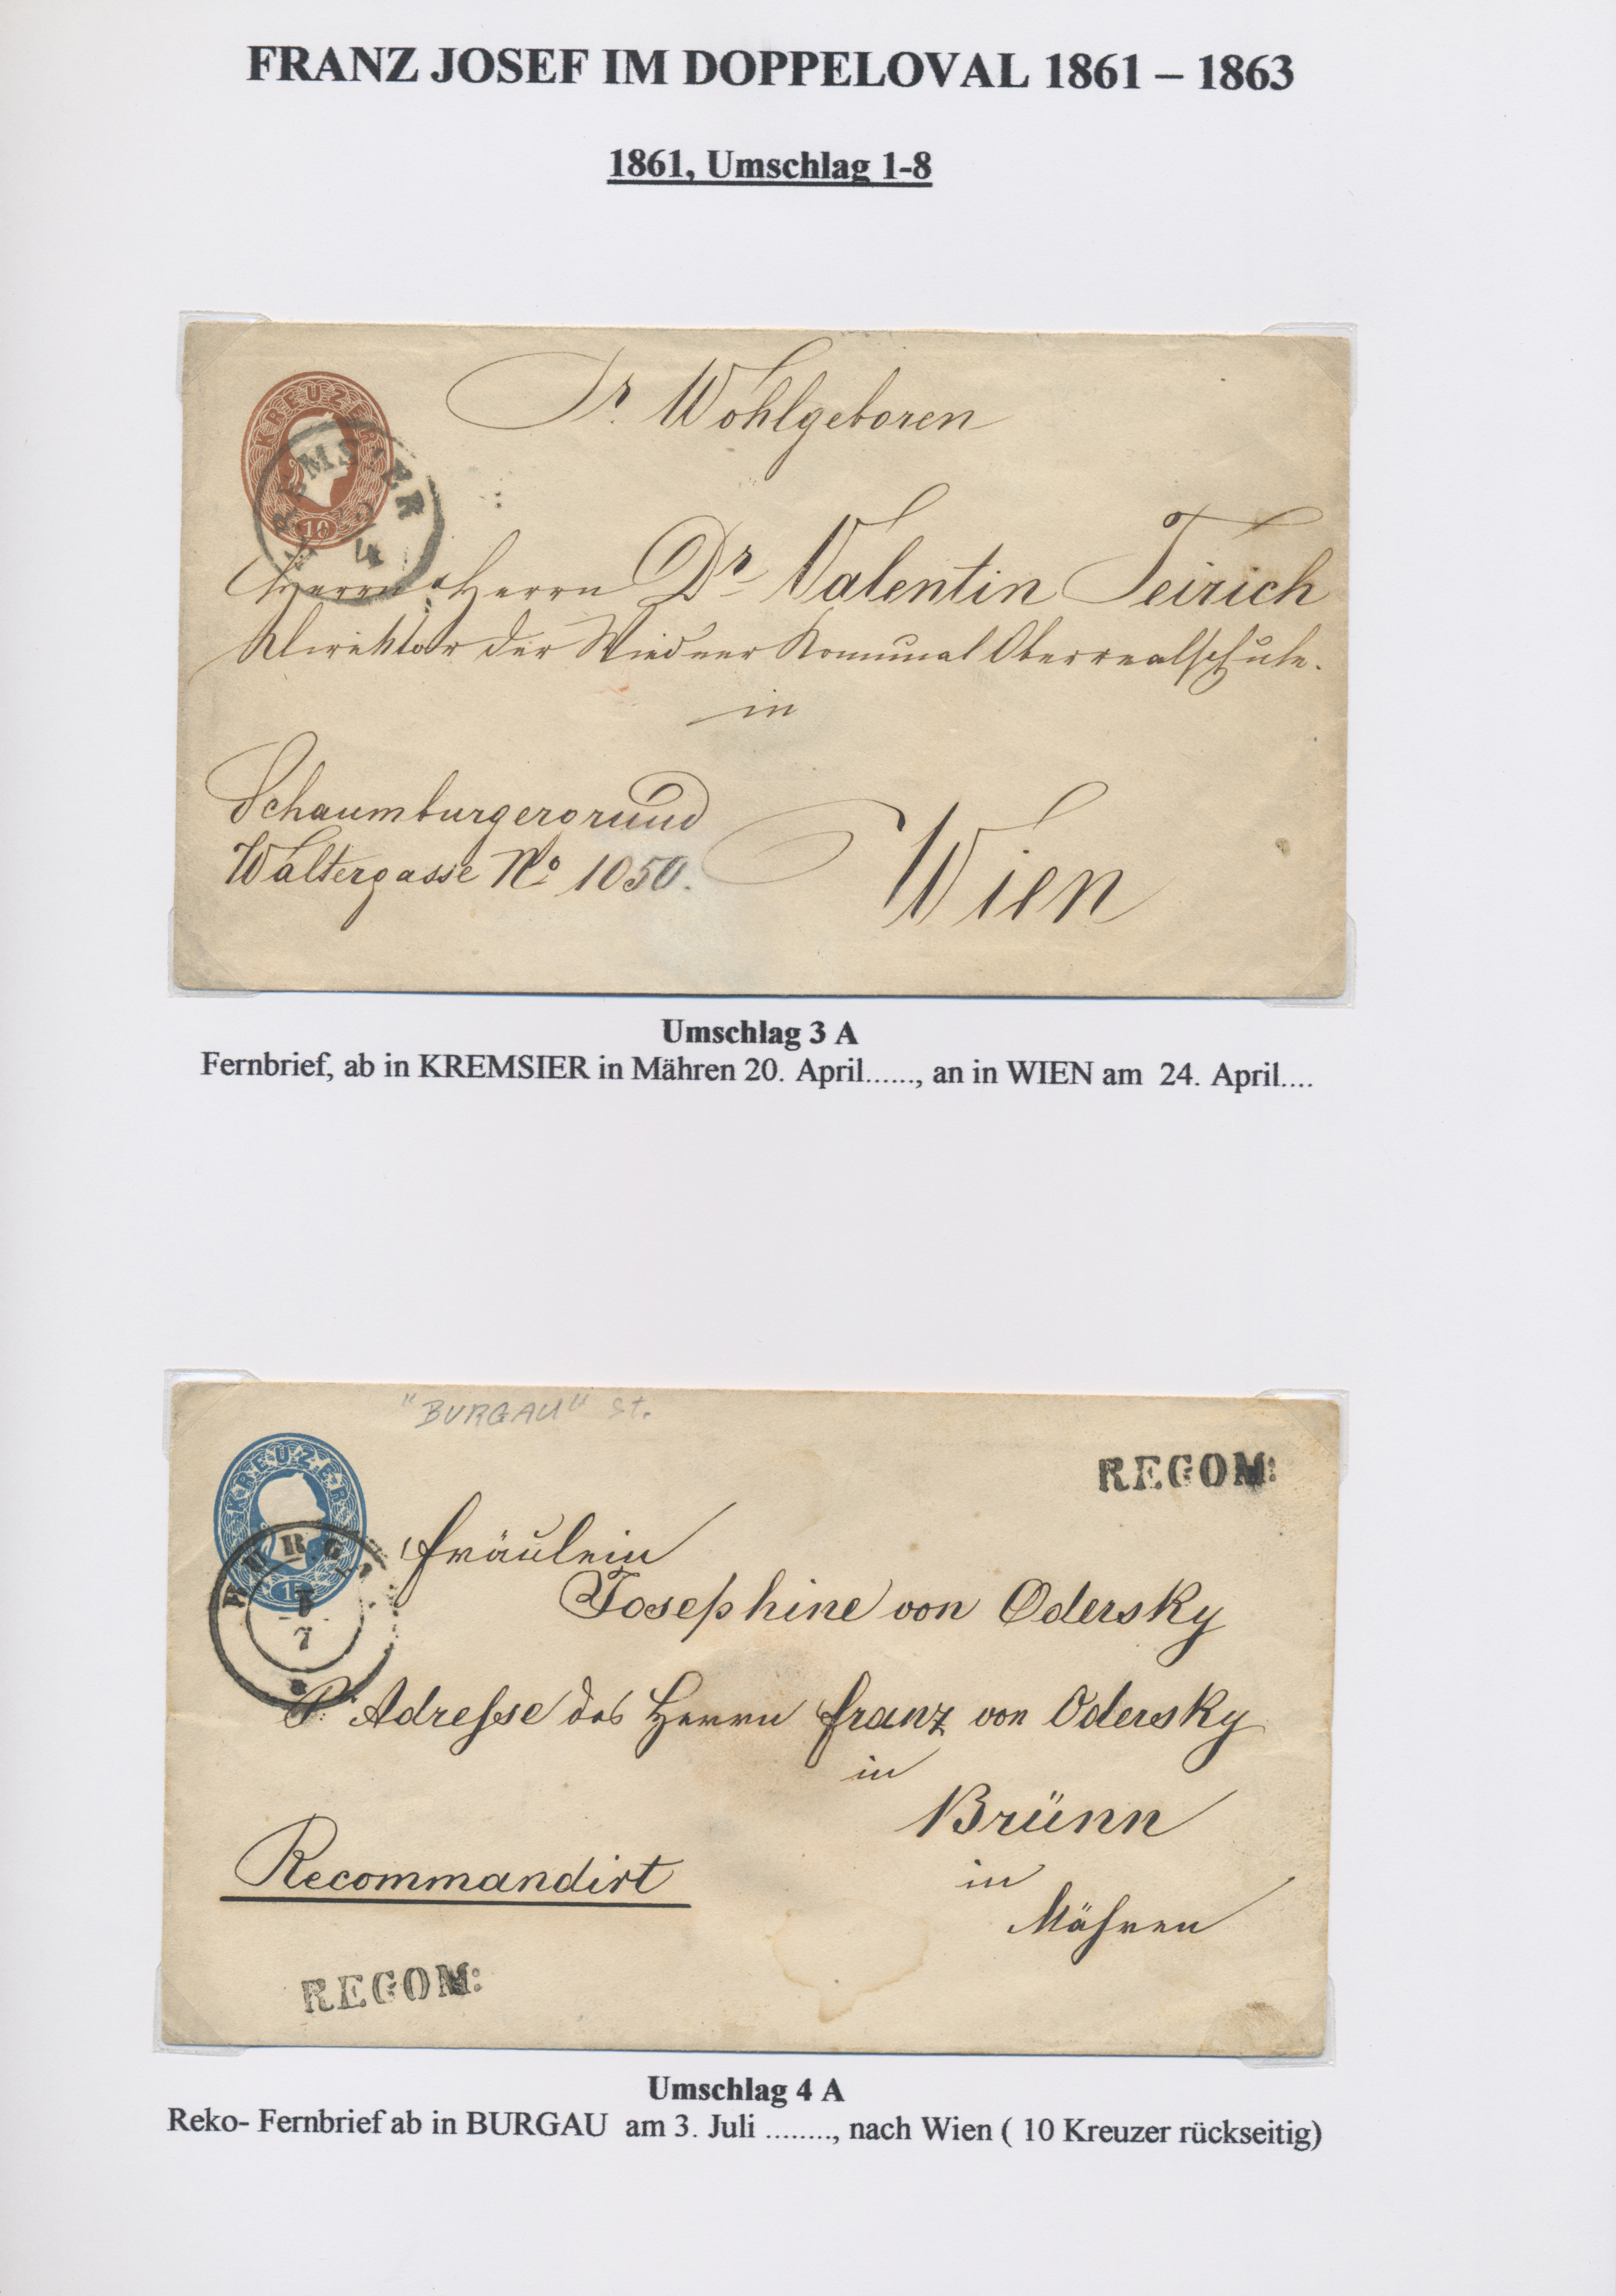 FRANZ JOSEF IM DOPPELOVAL 1861 – 1863
1861, Umschlag 1-8
KREUZER
10
Sr. Wohlgeboren
Herrn Herrn Dr Valentin Teirich
Direktor der Wiedner Komunal Oberrealschule.
in
Schaumburgergrund
Waltergasse No 1050.
Wien
Umschlag 3 A
Fernbrief, ab in KREMSIER in Mähren 20. April......, an in WIEN am 24. April....
"BURGAU" St.
KREUZER
15
REGOM:
Fräulein
Josephine von Odersky
P. Adresse des Herrn Franz von Odersky
in
Brünn
in
Mähren
Recommandirt
REGOM:
Umschlag 4 A
Reko- Fernbrief ab in BURGAU am 3. Juli ........, nach Wien ( 10 Kreuzer rückseitig)